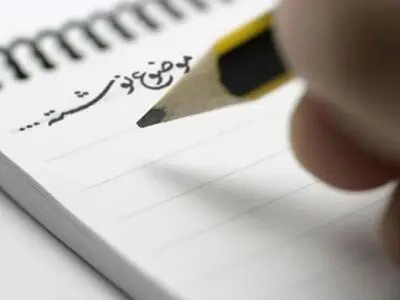 موضوع نوشته...